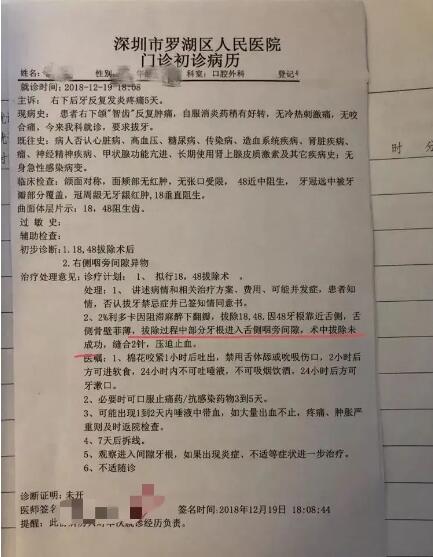 深圳市罗湖区人民医院
门诊初诊病历
姓名: 性别 科室:口腔外科 登记
就诊时间:2018-12-19 18:08
主诉: 右下后牙反复发炎疼痛5天。
现病史: 患者右下颌"智齿"反复肿痛,自服消炎药稍有好转,无冷热刺激痛,无咬
合痛,今来我科就诊,要求拔牙。
既往史:病人否认心脏病、高血压、糖尿病、传染病、造血系统疾病、肾脏疾病、
瘤、神经精神疾病、甲状腺功能亢进、长期使用肾上腺皮质激素及其它疾病史;无
身急性感染病变。
临床检查:颌面对称,面颊部无红肿,无张口受限, 48近中阻生, 牙冠远中被牙
龈部分覆盖,冠周龈无牙龈红肿,18垂直阻生。
曲面体层片示:18,48阻生齿。
过 敏 史:
辅助检查:
初步诊断:1.18,48拔除术后
2.右侧咽旁间隙异物
治疗处理意见:诊疗计划: 1、 拟行18,48拔除术 。
处理:1、讲述病情和相关治疗方案、费用、可能并发症,患者知
情,否认拔牙禁忌症并已签知情同意书。
2、2%利多卡因阻滞麻醉下翻瓣,拔除18,48,因48牙根靠近舌侧,舌
侧骨壁菲薄,拔除过程中部分牙根进入舌侧咽旁间隙,术中拔除未
成功,缝合2针,压迫止血。
医嘱:1、棉花咬紧1小时后吐出,禁用舌体舔或吮吸伤口,2小时后
方可进软食,24小时内不可吐唾液,不可吸烟饮酒,24小时后方可
牙漱口。
2、必要时可口服止痛药/抗感染药物3到5天。
3、可能出现1到2天内唾液中带血,如大量出血不止,疼痛、肿胀严
重则及时返院检查。
4、7天后拆线。
5、观察进入间隙牙根,如果出现炎症、不适等症状进一步治疗。
6、不适随诊
诊断证明:未开
医师签名 签名时间:2018年12月19日 18:08:44
提醒:此 历 次就诊经历负责。
时 分